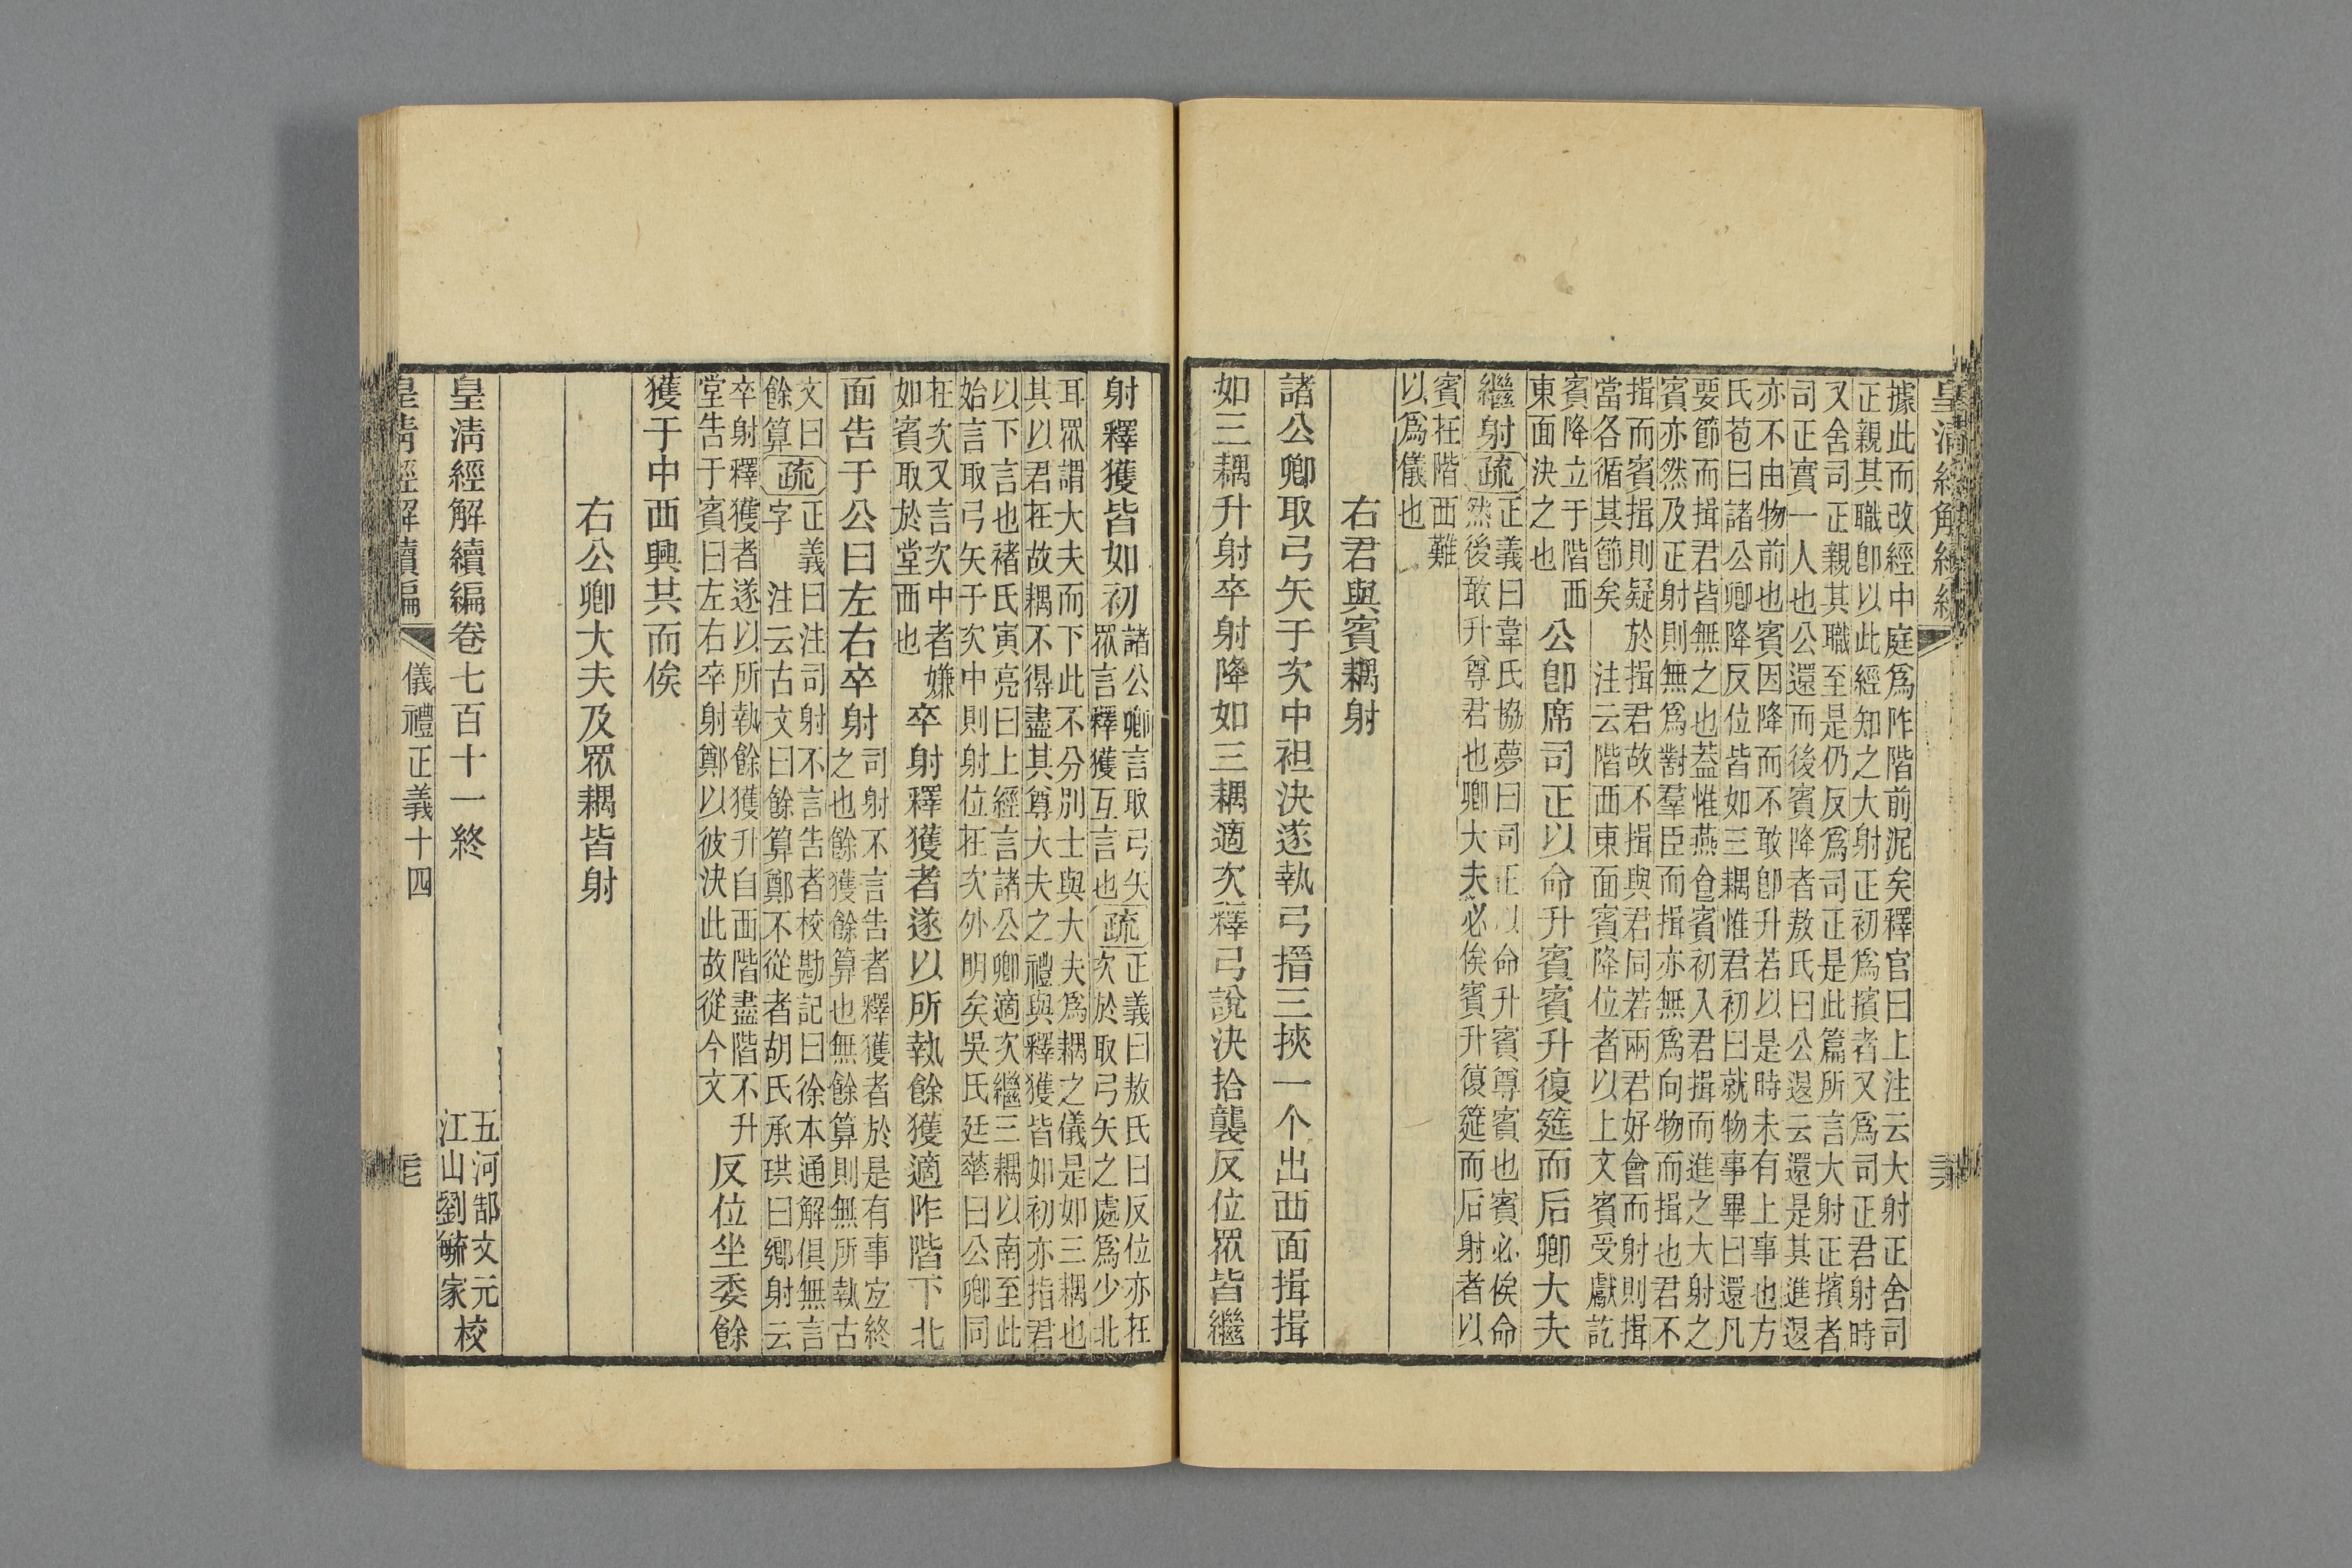 皇清經解續編
據此而改經中庭爲阼階前泥矣釋官曰上注云大射正舍司
正親其職卽以此經知之大射正初爲擯者又爲司正君射時
又舍司正親其職至是仍反爲司正是此篇所言大射正擯者
司正實一人也公還而後賓降者敖氏曰公退云還是其進退
亦不由物前也賓因降而不敢卽升若以是時未有上事也方
氏苞曰諸公卿降反位皆如三耦惟君初曰就物事畢曰還凡
要節而揖君皆無之也蓋惟燕食賓初入君揖而進之大射之
賓亦然及正射則無爲對羣臣而揖亦無爲向物而揖也君不
揖而賓揖則疑於揖君故不揖與君同若兩君好會而射則揖
當各循其節矣 注云階西東面賓降位者以上文賓受獻訖
賓降立于階西
東面決之也
公卽席司正以命升賓賓升復筵而后卿大夫
繼射疏
正義曰韋氏協夢曰司正以命升賓尊賓也賓必俟命
然後敢升尊君也卿大夫必俟賓升復筵而后射者以
賓在階西難
以爲儀也
右君與賓耦射
諸公卿取弓矢于次中袒決遂執弓搢三挾一个出西面揖揖
如三耦升射卒射降如三耦適次釋弓說決拾襲反位眾皆繼
射釋獲皆如初
諸公卿言取弓矢
眾言釋獲互言也
疏
正義曰敖氏曰反位亦在
次於取弓矢之處爲少北
耳眾謂大夫而下此不分別士與大夫爲耦之儀是如三耦也
其以君在故耦不得盡其尊大夫之禮與釋獲皆如初亦指君
以下言也褚氏寅亮曰上經言諸公卿適次繼三耦以南至此
始言取弓矢于次中則射位在次外明矣吳氏廷華曰公卿同
在次又言次中者嫌
如賓取於堂西也
卒射釋獲者遂以所執餘獲適阼階下北
面告于公曰左右卒射
司射不言告者釋獲者於是有事宜終
之也餘獲餘算也無餘算則無所執古
文曰
餘算
疏
正義曰注司射不言告者校勘記曰徐本通解俱無言
字 注云古文曰餘算鄭不從者胡氏承珙曰鄉射云
卒射釋獲者遂以所執餘獲升自西階盡階不升
堂告于賓曰左右卒射鄭以彼決此故從今文
反位坐委餘
獲于中西興共而俟
右公卿大夫及眾耦皆射
皇清經解續編卷七百十一終
五河郜文元
江山劉毓家
校
皇清經解續編
儀禮正義十四